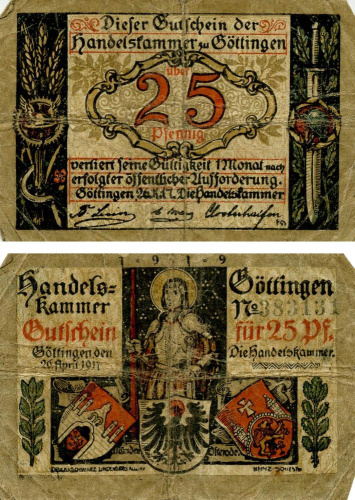 Dieser Gutschein der
Handelskammer zu Göttingen
über
25
Pfennig
verliert seine Gültigkeit 1 Monat nach
erfolgter öffentlicher Aufforderung.
Göttingen 26.IV.17. Die Handelskammer
1919
Handels-
kammer
Göttingen
No 385131
Gutschein
für 25 Pf.
Göttingen den
26 April 1917
Die Handelskammer.